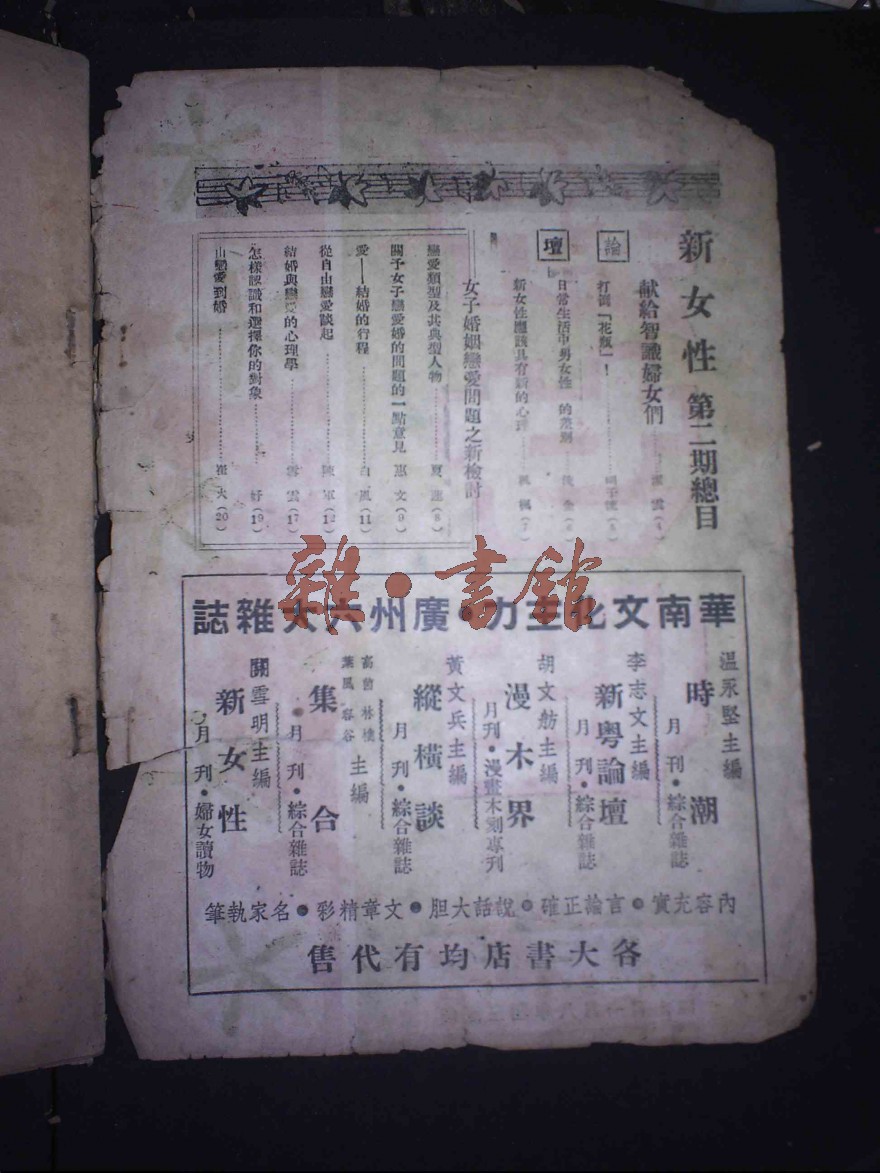 新女性 第二期總目
献給智識婦女們
雲(4)
論壇
打倒「花瓶」!
日常生活中男女性 的差別
新女性應該具有新的心理 楓(7)
女子婚姻戀愛問題之新檢討
戀愛類型及其典型人物 夏蓮(8)
關于女子戀愛婚的問題的一點意見 惠文(9)
愛——結婚的行程 白嵐(11)
從自由戀愛談起 陳軍(12)
結婚與戀愛的心理學 雲(17)
怎樣認識和選擇你的對象 好(19)
戀愛到婚 崔火(20)
華南文化主力•廣州六大雜誌
溫永堅主編
時潮
月刊•綜合雜誌
李志文主編
新粵論壇
月刊•綜合雜誌
胡文舫主編
漫木界
月刊•漫畫木刻專刊
黃文兵主編
縱橫談
月刊•綜合雜誌
高茵 林棲 葉風 容谷 主編
集合
月刊•綜合雜誌
關雪明主編
新女性
月刊•婦女讀物
內容充實•言論正確•說話大胆•文章精彩•名家執筆
各大書店均有代售
雜•書館